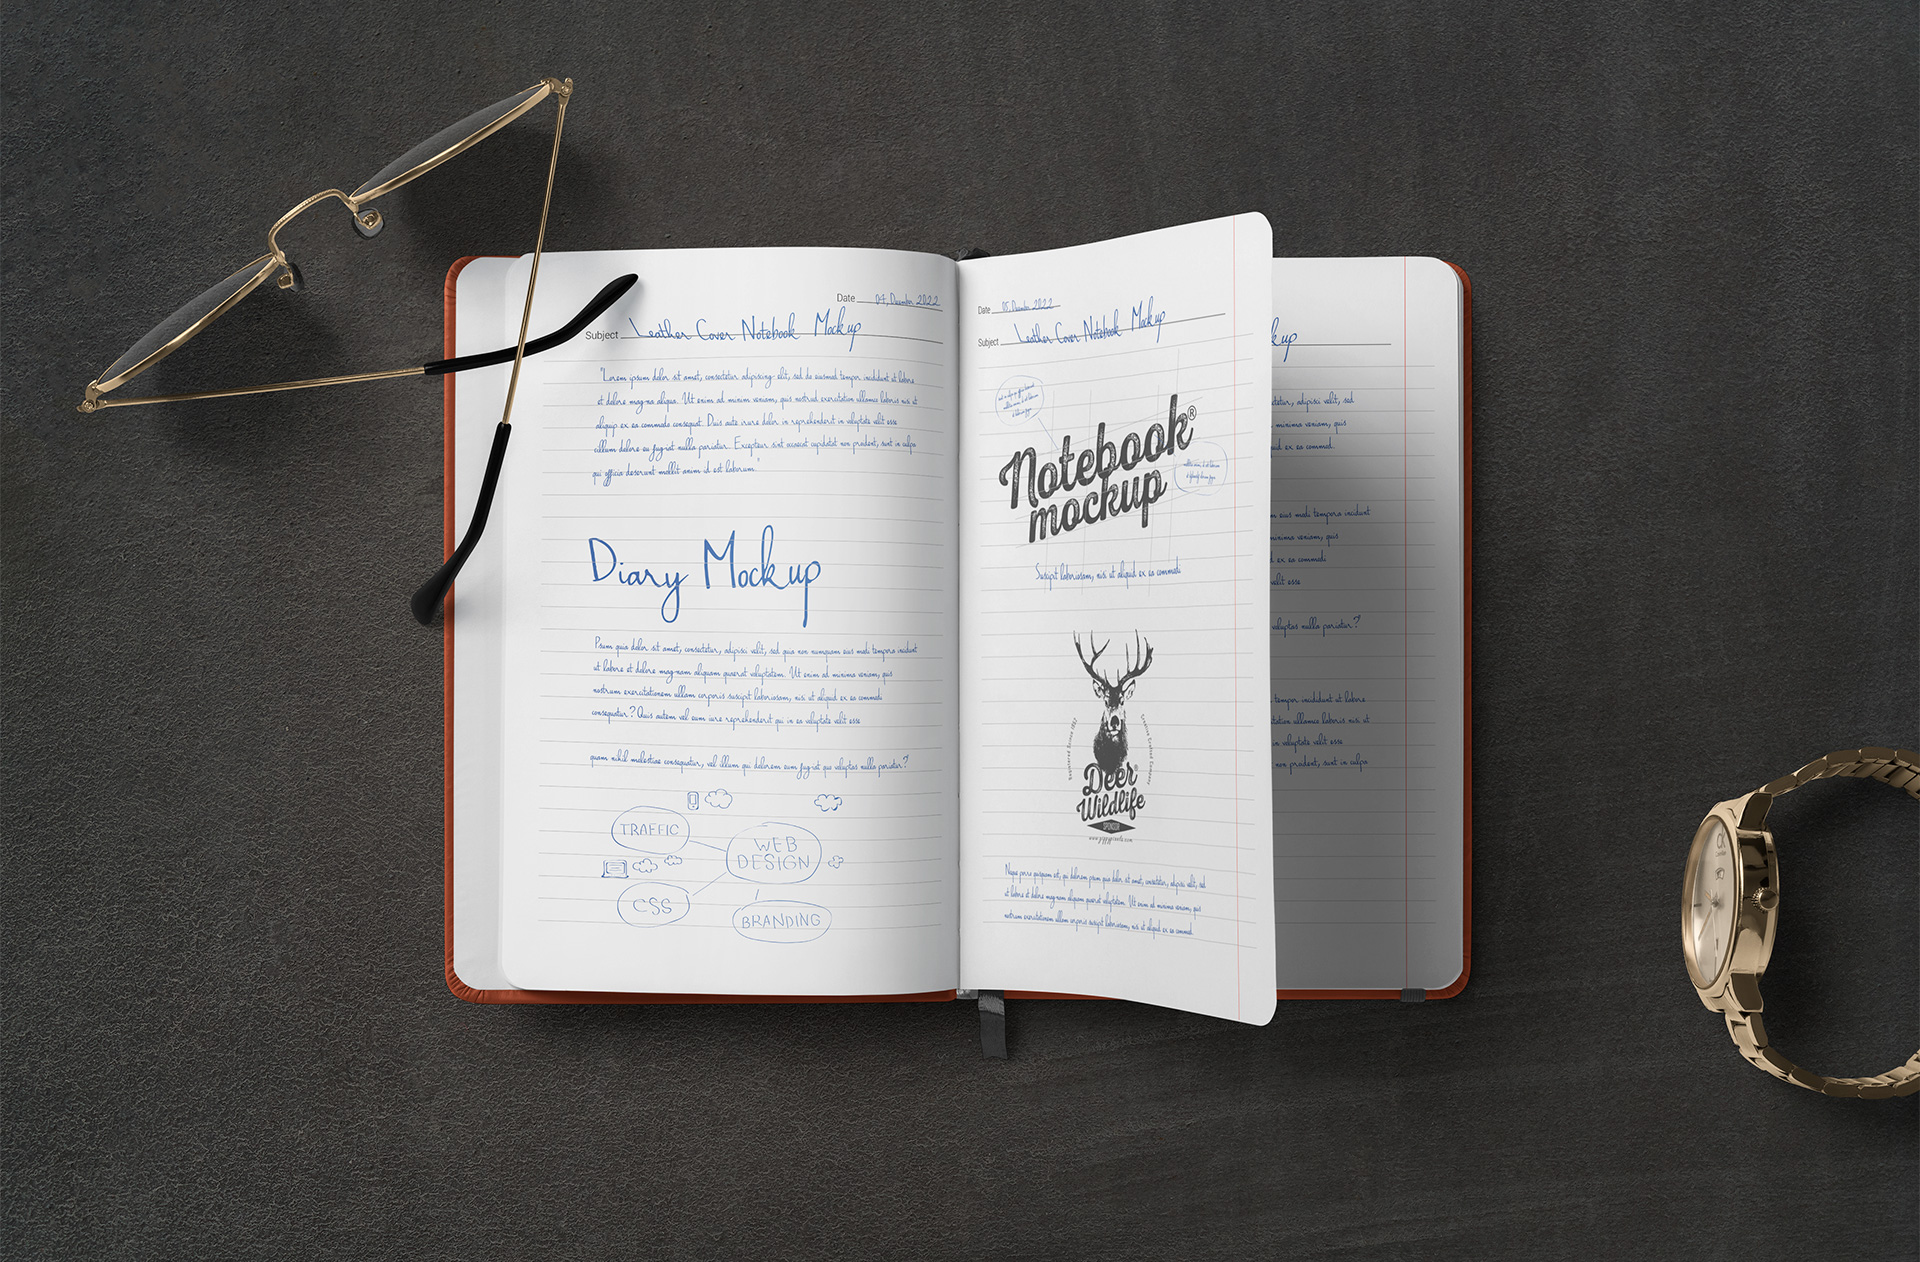 Date 04, December 2022
Subject Leather Cover Notebook Mockup
"Lorem ipsum dolor sit amet, consectetur adipiscing elit, sed do eiusmod tempor incididunt ut labore
et dolore magna aliqua. Ut enim ad minim veniam, quis nostrud exercitation ullamco laboris nisi ut
aliquip ex ea commodo consequat. Duis aute irure dolor in reprehenderit in voluptate velit esse
cillum dolore eu fugiat nulla pariatur. Excepteur sint occaecat cupidatat non proident, sunt in culpa
qui officia deserunt mollit anim id est laborum."
Diary Mockup
Psum quia dolor sit amet, consectetur, adipisci velit, sed quia non numquam eius modi tempora incidunt
ut labore et dolore magnam aliquam quaerat voluptatem. Ut enim ad minima veniam, quis
nostrum exercitationem ullam corporis suscipit laboriosam, nisi ut aliquid ex ea commodi
consequatur? Quis autem vel eum iure reprehenderit qui in ea voluptate velit esse
quam nihil molestiae consequatur, vel illum qui dolorem eum fugiat quo voluptas nulla pariatur?
TRAFFIC
WEB
DESIGN
CSS
BRANDING
Date 05, December 2022
Subject Leather Cover Notebook Mockup
Notebook®
mockup
Suscipit laboriosam, nisi ut aliquid ex ea commodi
Deer®
Wildlife
SPONSOR
Neque porro quisquam est, qui dolorem ipsum quia dolor sit amet, consectetur, adipisci velit, sed
ut labore et dolore magnam aliquam quaerat voluptatem. Ut enim ad minima veniam, quis
nostrum exercitationem ullam corporis suscipit laboriosam, nisi ut aliquid ex ea commodi
kup
adipisci velit, sed
minima veniam, quis
ex ea commod
eius modi tempora incidunt
minima veniam, quis
ex ea commodi
velit esse
voluptas nulla pariatur?
tempor incididunt ut labore
ullamco laboris nisi ut
in voluptate velit esse
non proident, sunt in culpa